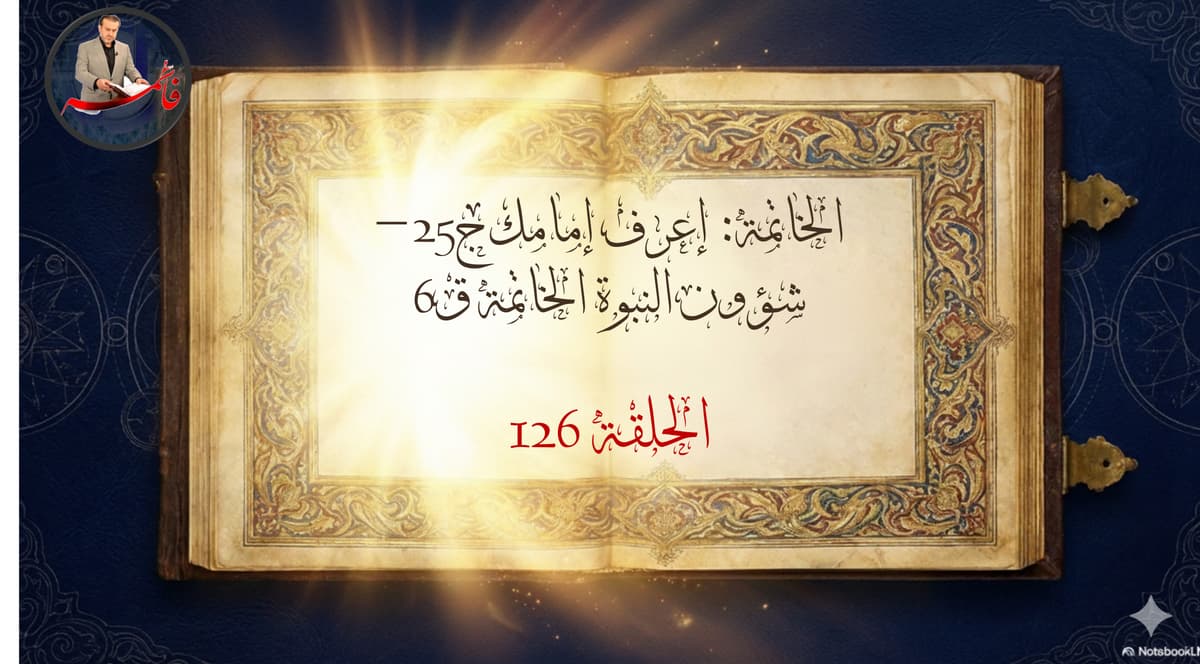 فاطمة
الخاتمة: إعرف إمامك ج25 –
شؤون النبوة الخاتمة ق6
الحلقة 126
NotsbookL